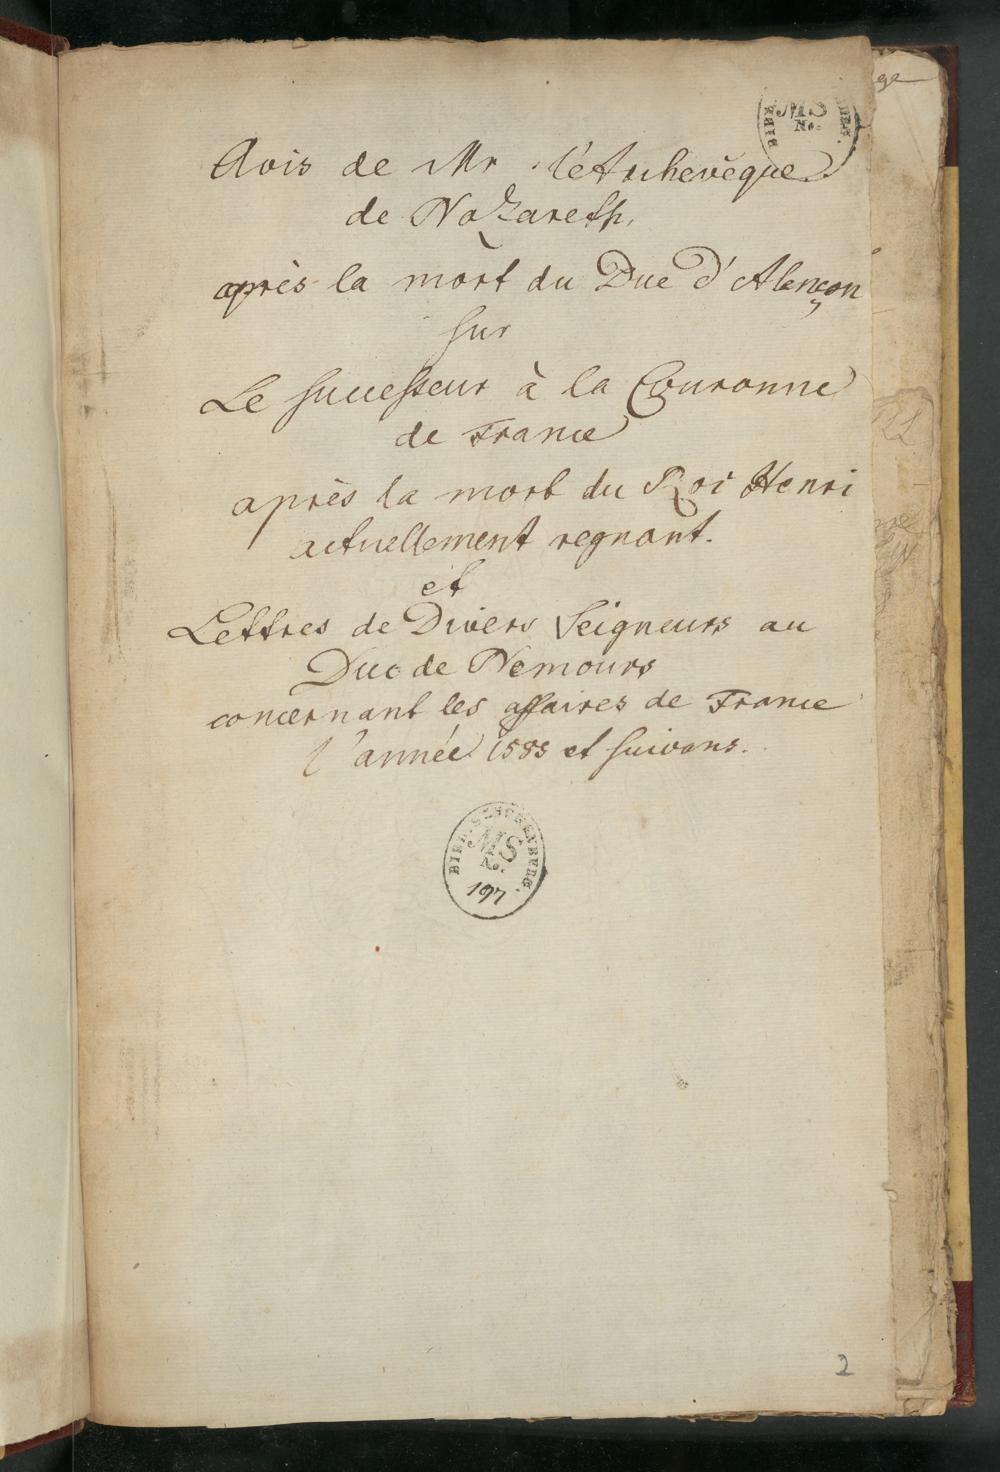 MS
No.
Avis de Mr l'Archevêque
de Nazareth,
après la mort du Duc d'Alençon
sur
Le successeur à la Couronne
de France
après la mort du Roi Henri
actuellement regnant.
et
Lettres de Divers Seigneurs au
Duc de Nemours
concernant les affaires de France
l'année 1585 et suivans.
MS
No.
197
2